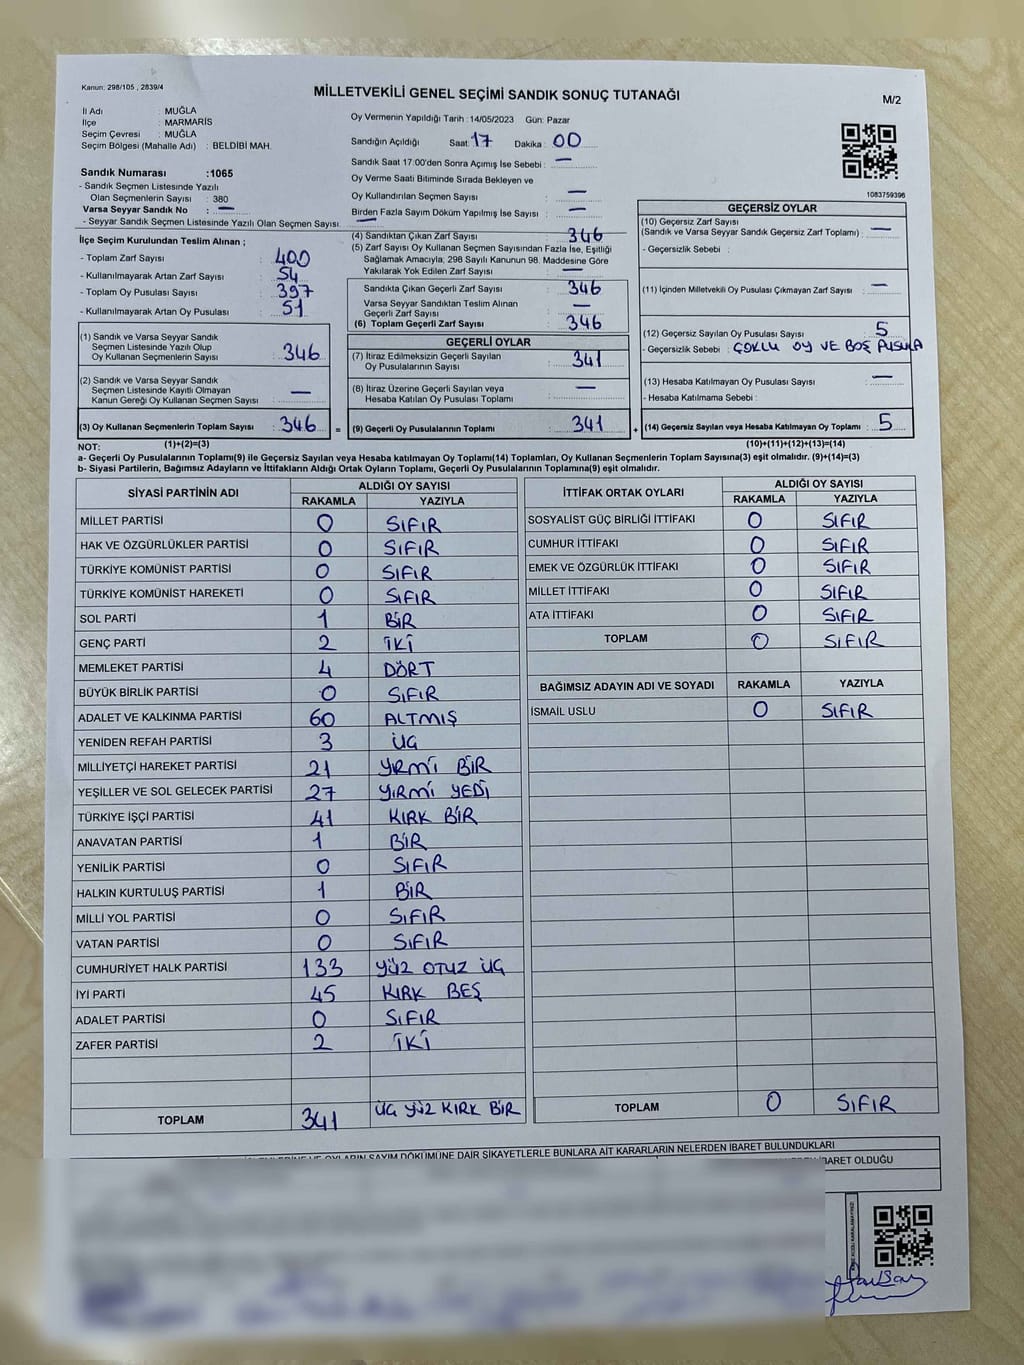 Kanun: 298/105 , 2839/4
MİLLETVEKİLİ GENEL SEÇİMİ SANDIK SONUÇ TUTANAĞI
M/2
İl Adı : MUĞLA
İlçe : MARMARİS
Seçim Çevresi : MUĞLA
Seçim Bölgesi (Mahalle Adı) : BELDİBİ MAH.
Sandık Numarası :1065
- Sandık Seçmen Listesinde Yazılı
Olan Seçmenlerin Sayısı : 380
Varsa Seyyar Sandık No : —
- Seyyar Sandık Seçmen Listesinde Yazılı Olan Seçmen Sayısı : —
Oy Vermenin Yapıldığı Tarih : 14/05/2023 Gün: Pazar
Sandığın Açıldığı Saat: 17 Dakika : 00
Sandık Saat 17:00'den Sonra Açımış İse Sebebi : —
Oy Verme Saati Bitiminde Sırada Bekleyen ve
Oy Kullandırılan Seçmen Sayısı : —
Birden Fazla Sayım Döküm Yapılmış İse Sayısı : —
1083759396
İlçe Seçim Kurulundan Teslim Alınan ;
- Toplam Zarf Sayısı : 400
- Kullanılmayarak Artan Zarf Sayısı : 54
- Toplam Oy Pusulası Sayısı : 397
- Kullanılmayarak Artan Oy Pusulası : 51
(1) Sandık ve Varsa Seyyar Sandık
Seçmen Listesinde Yazılı Olup
Oy Kullanan Seçmenlerin Sayısı : 346
(2) Sandık ve Varsa Seyyar Sandık
Seçmen Listesinde Kayıtlı Olmayan
Kanun Gereği Oy Kullanan Seçmen Sayısı : —
(3) Oy Kullanan Seçmenlerin Toplam Sayısı : 346
(4) Sandıktan Çıkan Zarf Sayısı : 346
(5) Zarf Sayısı Oy Kullanan Seçmen Sayısından Fazla İse, Eşitliği
Sağlamak Amacıyla, 298 Sayılı Kanunun 98. Maddesine Göre
Yakılarak Yok Edilen Zarf Sayısı : —
Sandıkta Çıkan Geçerli Zarf Sayısı : 346
Varsa Seyyar Sandıktan Teslim Alınan
Geçerli Zarf Sayısı : —
(6) Toplam Geçerli Zarf Sayısı : 346
GEÇERLİ OYLAR
(7) İtiraz Edilmeksizin Geçerli Sayılan
Oy Pusulalarının Sayısı : 341
(8) İtiraz Üzerine Geçerli Sayılan veya
Hesaba Katılan Oy Pusulası Toplamı : —
= (9) Geçerli Oy Pusulalarının Toplamı : 341
GEÇERSİZ OYLAR
(10) Geçersiz Zarf Sayısı
(Sandık ve Varsa Seyyar Sandık Geçersiz Zarf Toplamı) : —
- Geçersizlik Sebebi :
(11) İçinden Milletvekili Oy Pusulası Çıkmayan Zarf Sayısı : —
(12) Geçersiz Sayılan Oy Pusulası Sayısı : 5
- Geçersizlik Sebebi : ÇOKLU OY VE BOŞ PUSULA
(13) Hesaba Katılmayan Oy Pusulası Sayısı : —
- Hesaba Katılmama Sebebi :
+ (14) Geçersiz Sayılan veya Hesaba Katılmayan Oy Toplamı : 5
NOT: (1)+(2)=(3) (10)+(11)+(12)+(13)=(14)
a- Geçerli Oy Pusulalarının Toplamı(9) ile Geçersiz Sayılan veya Hesaba katılmayan Oy Toplamı(14) Toplamları, Oy Kullanan Seçmenlerin Toplam Sayısına(3) eşit olmalıdır. (9)+(14)=(3)
b- Siyasi Partilerin, Bağımsız Adayların ve İttifakların Aldığı Ortak Oyların Toplamı, Geçerli Oy Pusulalarının Toplamına(9) eşit olmalıdır.
SİYASİ PARTİNİN ADI ALDIĞI OY SAYISI
RAKAMLA YAZIYLA
MİLLET PARTİSİ 0 SIFIR
HAK VE ÖZGÜRLÜKLER PARTİSİ 0 SIFIR
TÜRKİYE KOMÜNİST PARTİSİ 0 SIFIR
TÜRKİYE KOMÜNİST HAREKETİ 0 SIFIR
SOL PARTİ 1 BİR
GENÇ PARTİ 2 İKİ
MEMLEKET PARTİSİ 4 DÖRT
BÜYÜK BİRLİK PARTİSİ 0 SIFIR
ADALET VE KALKINMA PARTİSİ 60 ALTMIŞ
YENİDEN REFAH PARTİSİ 3 ÜÇ
MİLLİYETÇİ HAREKET PARTİSİ 21 YİRMİ BİR
YEŞİLLER VE SOL GELECEK PARTİSİ 27 YİRMİ YEDİ
TÜRKİYE İŞÇİ PARTİSİ 41 KIRK BİR
ANAVATAN PARTİSİ 1 BİR
YENİLİK PARTİSİ 0 SIFIR
HALKIN KURTULUŞ PARTİSİ 1 BİR
MİLLİ YOL PARTİSİ 0 SIFIR
VATAN PARTİSİ 0 SIFIR
CUMHURİYET HALK PARTİSİ 133 YÜZ OTUZ ÜÇ
İYİ PARTİ 45 KIRK BEŞ
ADALET PARTİSİ 0 SIFIR
ZAFER PARTİSİ 2 İKİ
TOPLAM 341 ÜÇ YÜZ KIRK BİR
İTTİFAK ORTAK OYLARI ALDIĞI OY SAYISI
RAKAMLA YAZIYLA
SOSYALİST GÜÇ BİRLİĞİ İTTİFAKI 0 SIFIR
CUMHUR İTTİFAKI 0 SIFIR
EMEK VE ÖZGÜRLÜK İTTİFAKI 0 SIFIR
MİLLET İTTİFAKI 0 SIFIR
ATA İTTİFAKI 0 SIFIR
TOPLAM 0 SIFIR
BAĞIMSIZ ADAYIN ADI VE SOYADI RAKAMLA YAZIYLA
İSMAİL USLU 0 SIFIR
TOPLAM 0 SIFIR
OYLARIN SAYIM DÖKÜMÜNE DAİR ŞİKAYETLERLE BUNLARA AİT KARARLARIN NELERDEN İBARET BULUNDUKLARI
İBARET OLDUĞU